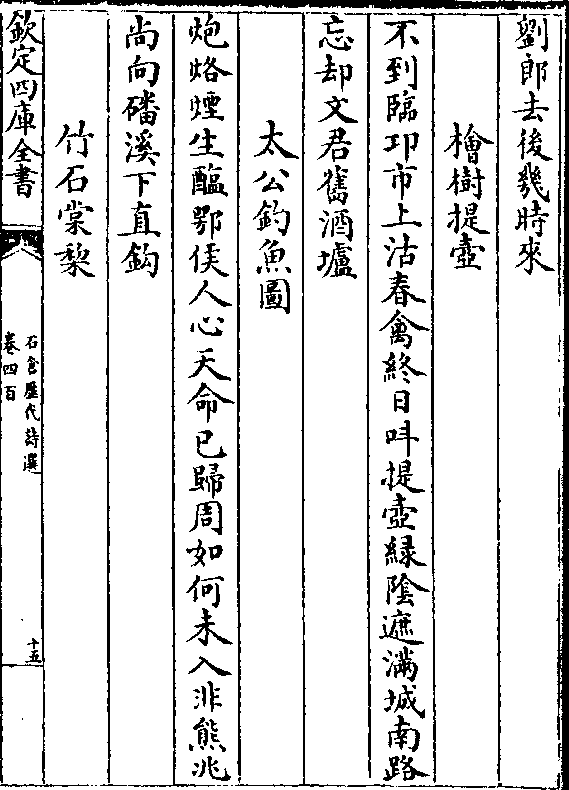 劉郎去後幾時來
檜樹提壺
不到臨卭市上沽春禽終日呌提壺緑隂遮滿城南路
忘却文君舊酒壚
太公釣魚圖
炮烙煙生醢鄂侯人心天命已歸周如何未入非熊兆
尚向磻溪下直鈎
竹石棠棃
欽定四庫全書
石倉歷代詩選
卷四百
十五